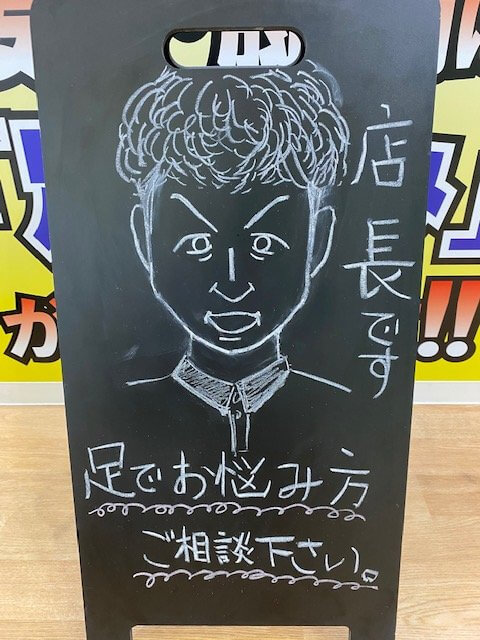 店長です
足でお悩み方
ご相談下さい。
!!